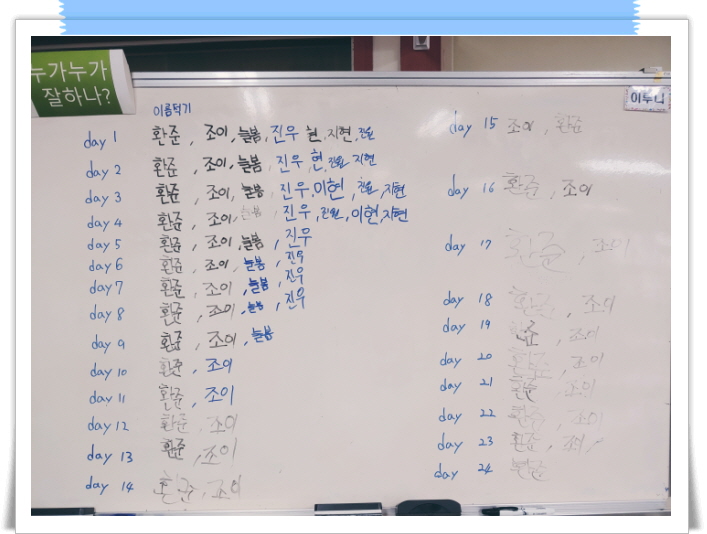 누가누가
잘하나?
이루니
이름적기
day 1 환준, 조이, 늘봄, 진우 현, 지현, 진원
day 2 환준, 조이, 늘봄, 진우, 현, 진원, 지현
day 3 환준, 조이, 늘봄, 진우, 이현, 진원, 지현
day 4 환준, 조이, 늘봄, 진우, 진원, 이현, 지현
day 5 환준, 조이, 늘봄, 진우
day 6 환준, 조이, 늘봄, 진우
day 7 환준, 조이, 늘봄, 진우
day 8 환준, 조이, 늘봄, 진우
day 9 환준, 조이, 늘봄
day 10 환준, 조이
day 11 환준, 조이
day 12 환준, 조이
day 13 환준, 조이
day 14 환준, 조이
day 15 조이, 환준
day 16 환준, 조이
day 17 환준, 조이
day 18 환준, 조이
day 19 환준, 조이
day 20 환준, 조이
day 21 환준, 조이
day 22 환준, 조이
day 23 환준, 조이,
day 24